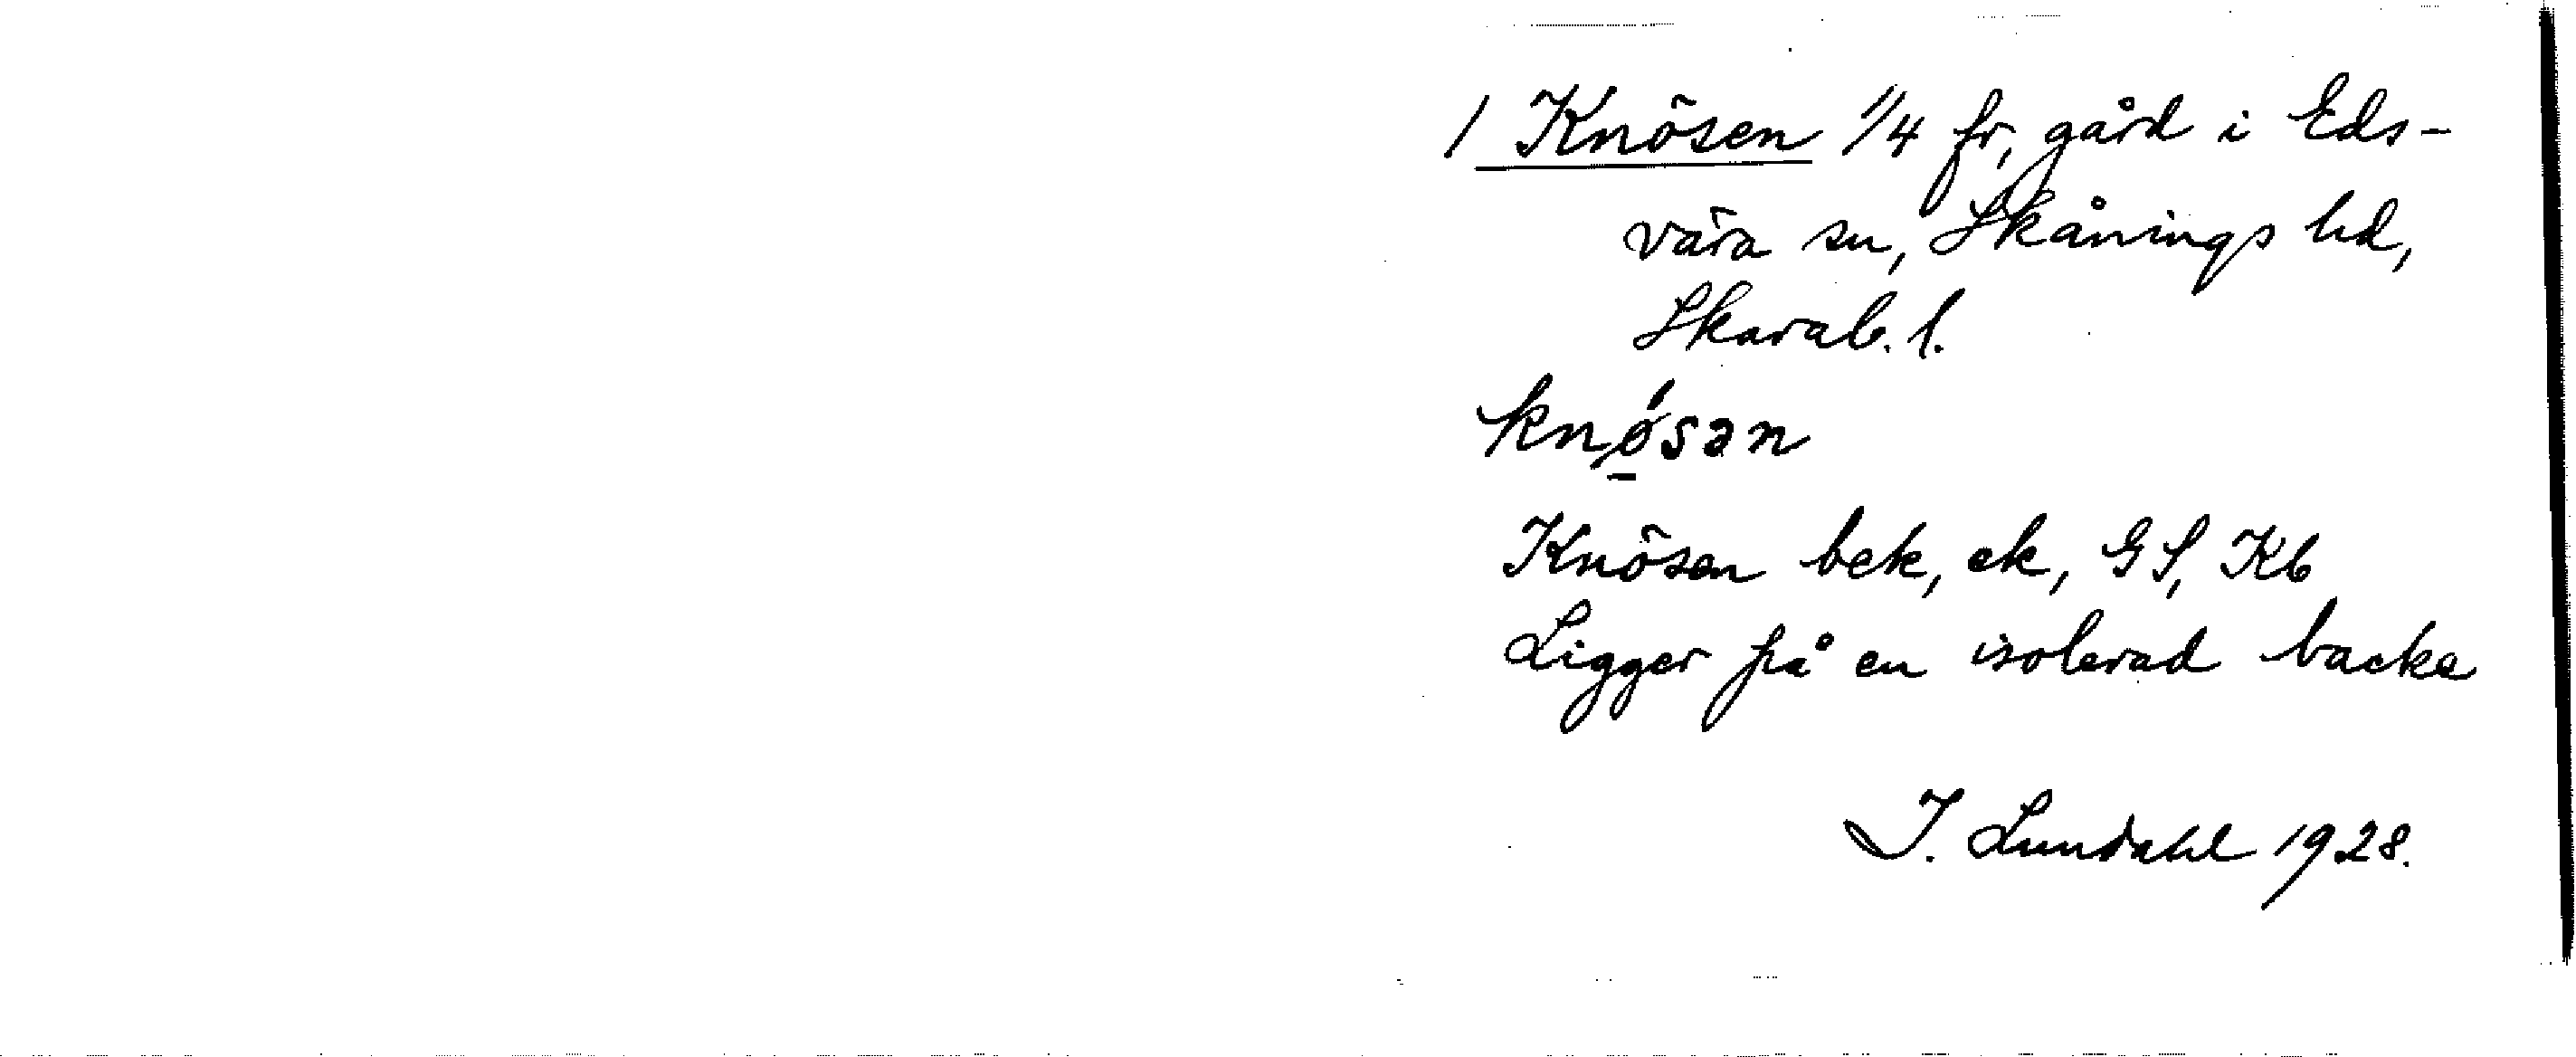 1 Knösen 1/4 fr, gård i Eds-
vära sn, Skånings hd,
Skarab. l.
knǿ̱sən
Knösen bek, ek, GS, Kb
Ligger på en isolerad backe
I. Lundahl 1928.